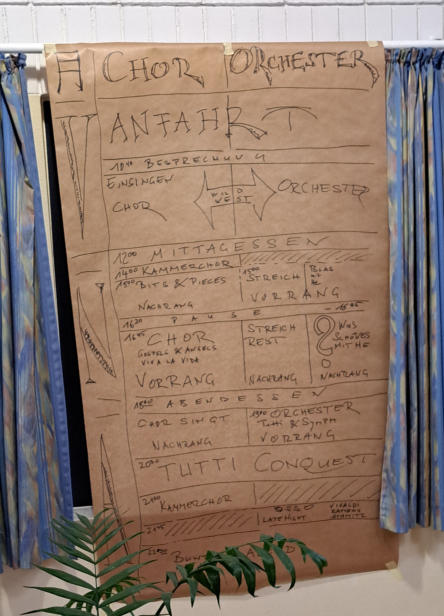 CHOR ORCHESTER
ANFAHRT
1040 BESPRECHUNG
EINSINGEN
CHOR
WILD
WEST
ORCHESTER
1200 MITTAGESSEN
1400 KAMMERCHOR
1500 BITS & PIECES
NACHRANG
1500 STREICH
VORRANG
1620 PAUSE
1645 CHOR
GOSPELS & ANGELS
VIVA LA VIDA
VORRANG
STREICH
REST
NACHRANG
WAS
SCHÖNES
MIT HE
NACHRANG
1800 ABENDESSEN
CHOR SINGT
NACHRANG
1900 ORCHESTER
Tutti & Symph
VORRANG
2000 TUTTI CONQUEST
2100 KAMMERCHOR
2145
LATE NIGHT
VIVALDI